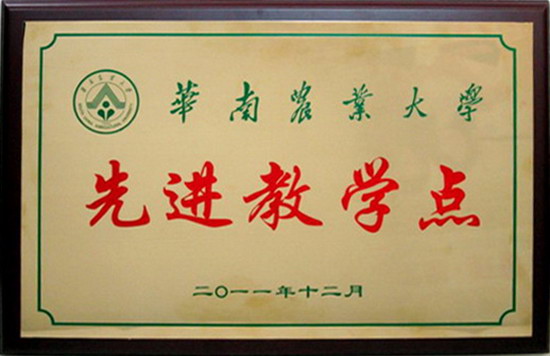 華南农業大學
先进教学点
二〇一一年十二月